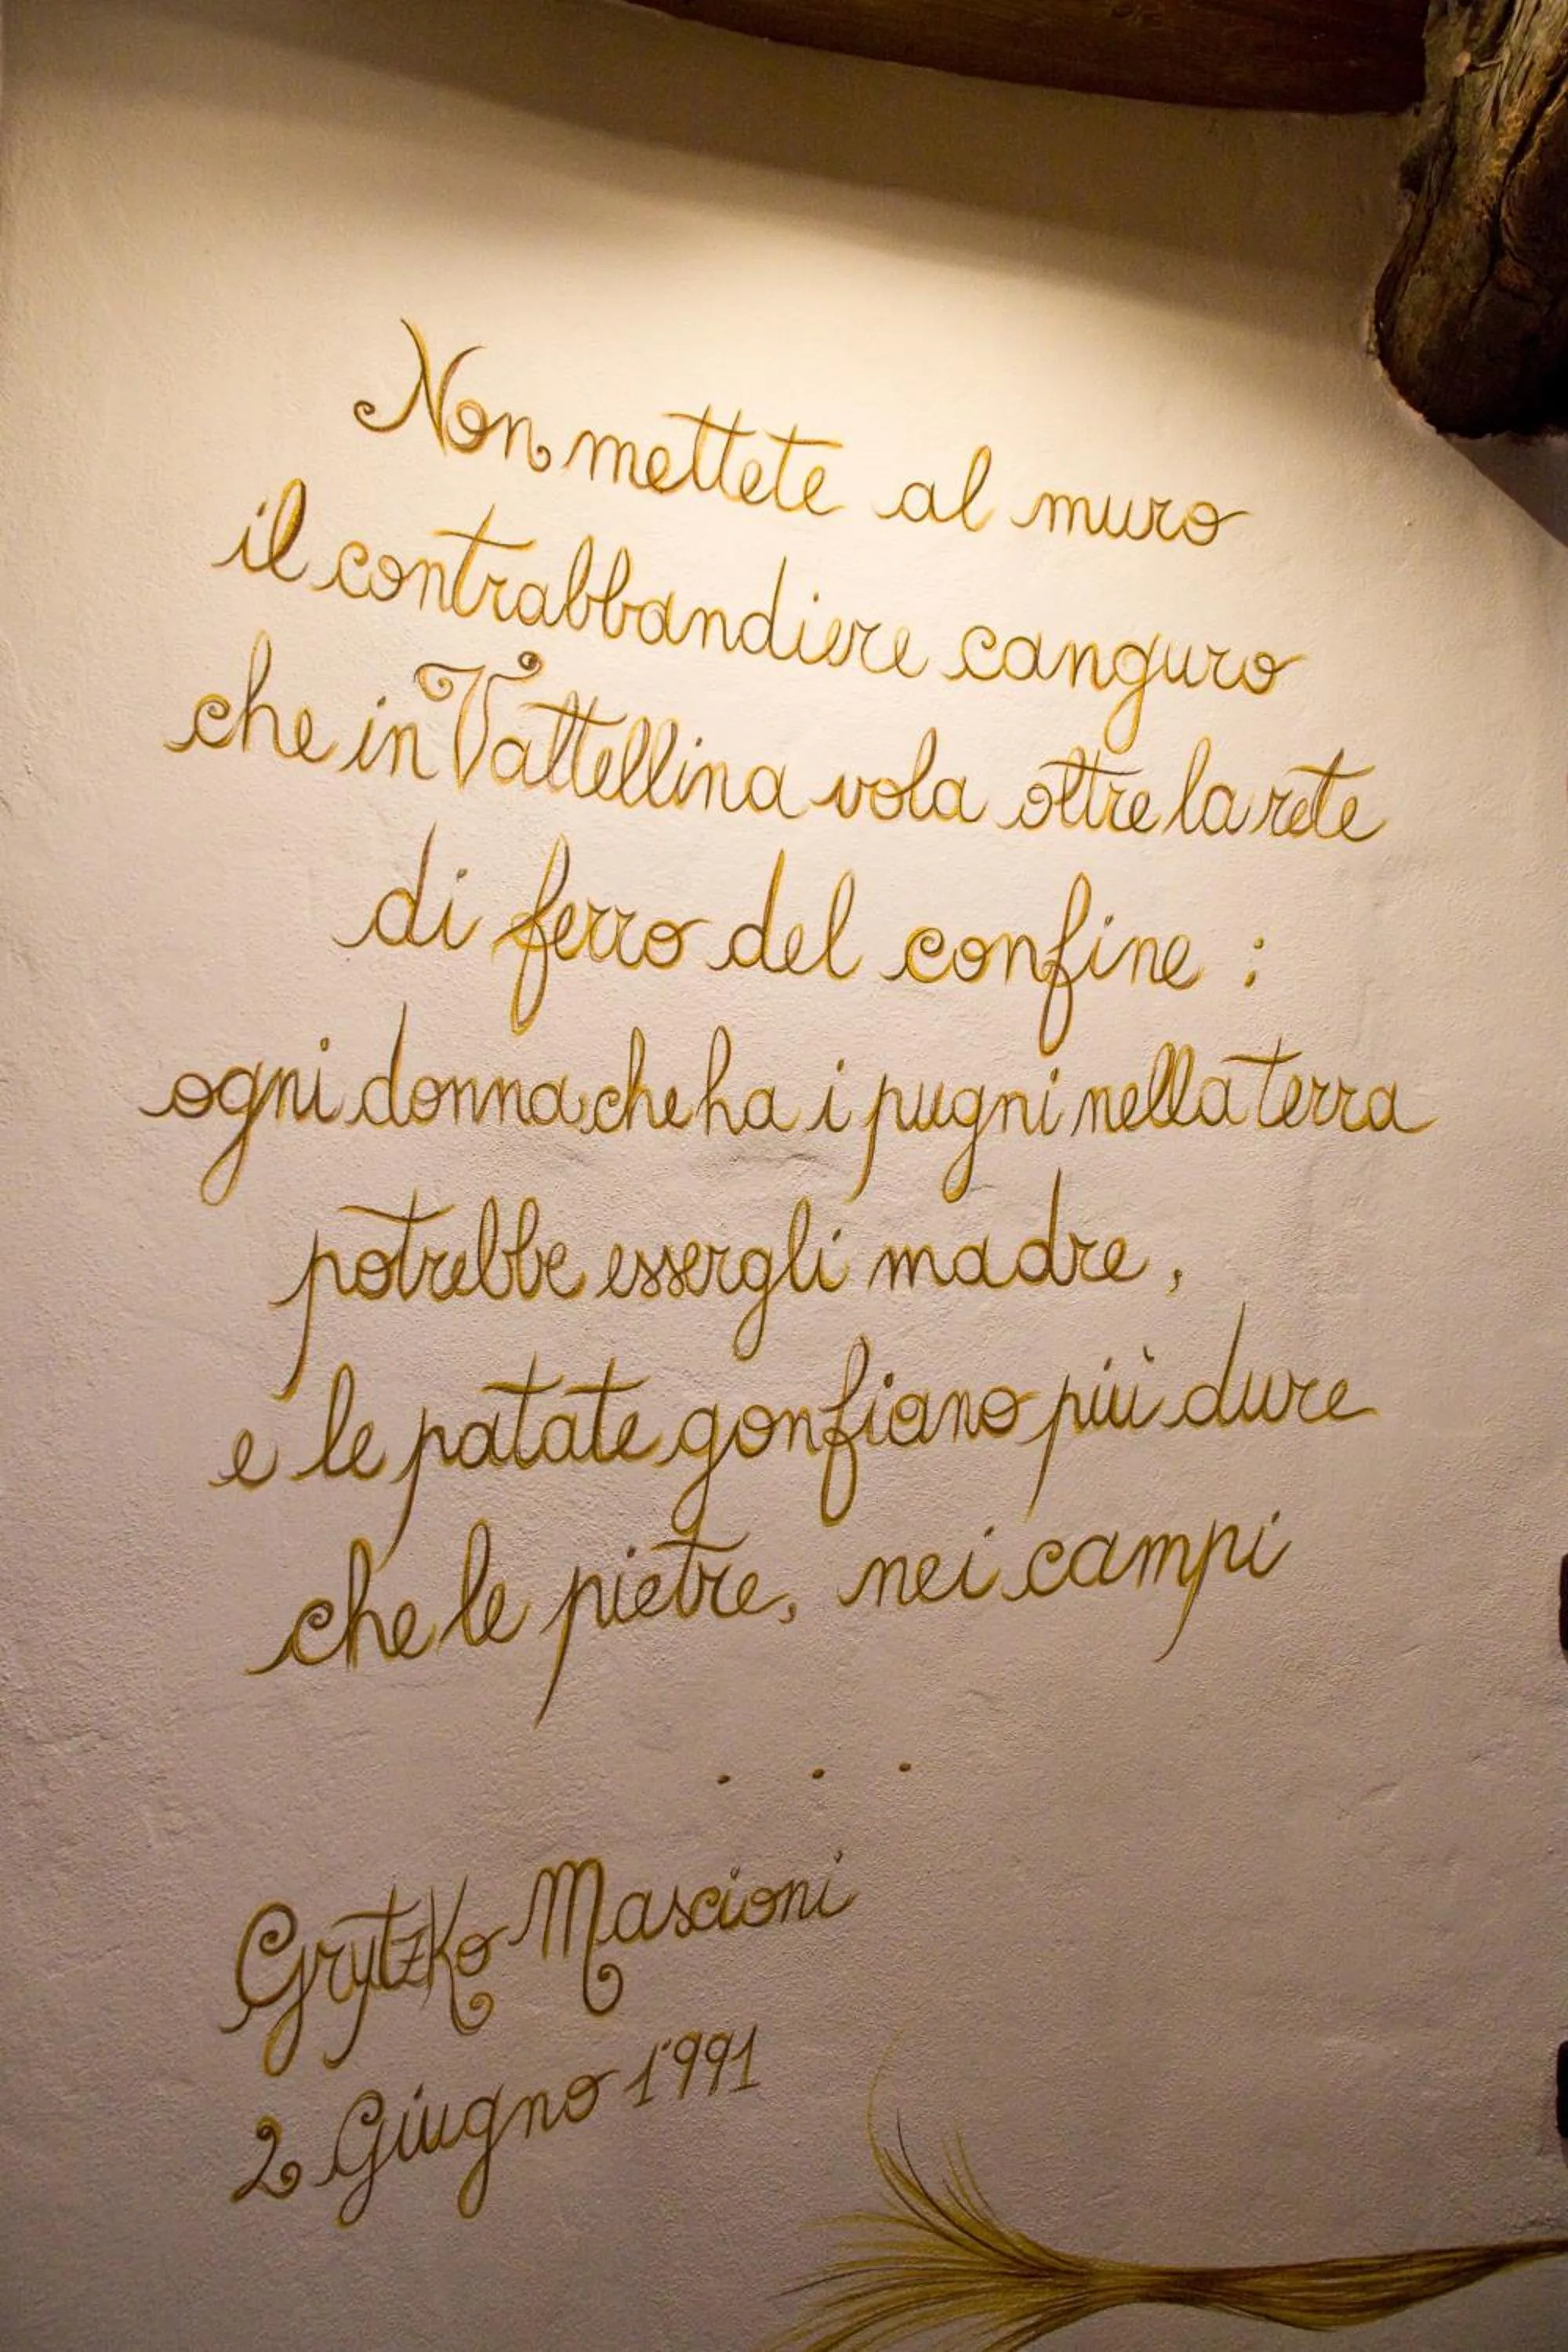 Non mettete al muro
il contrabbandiere canguro
che in Valtellina vola oltre la rete
di ferro del confine :
ogni donna che ha i pugni nella terra
potrebbe essergli madre,
e le patate gonfiano più dure
che le pietre, nei campi
. . .
Grytzko Mascioni
2 Giugno 1991